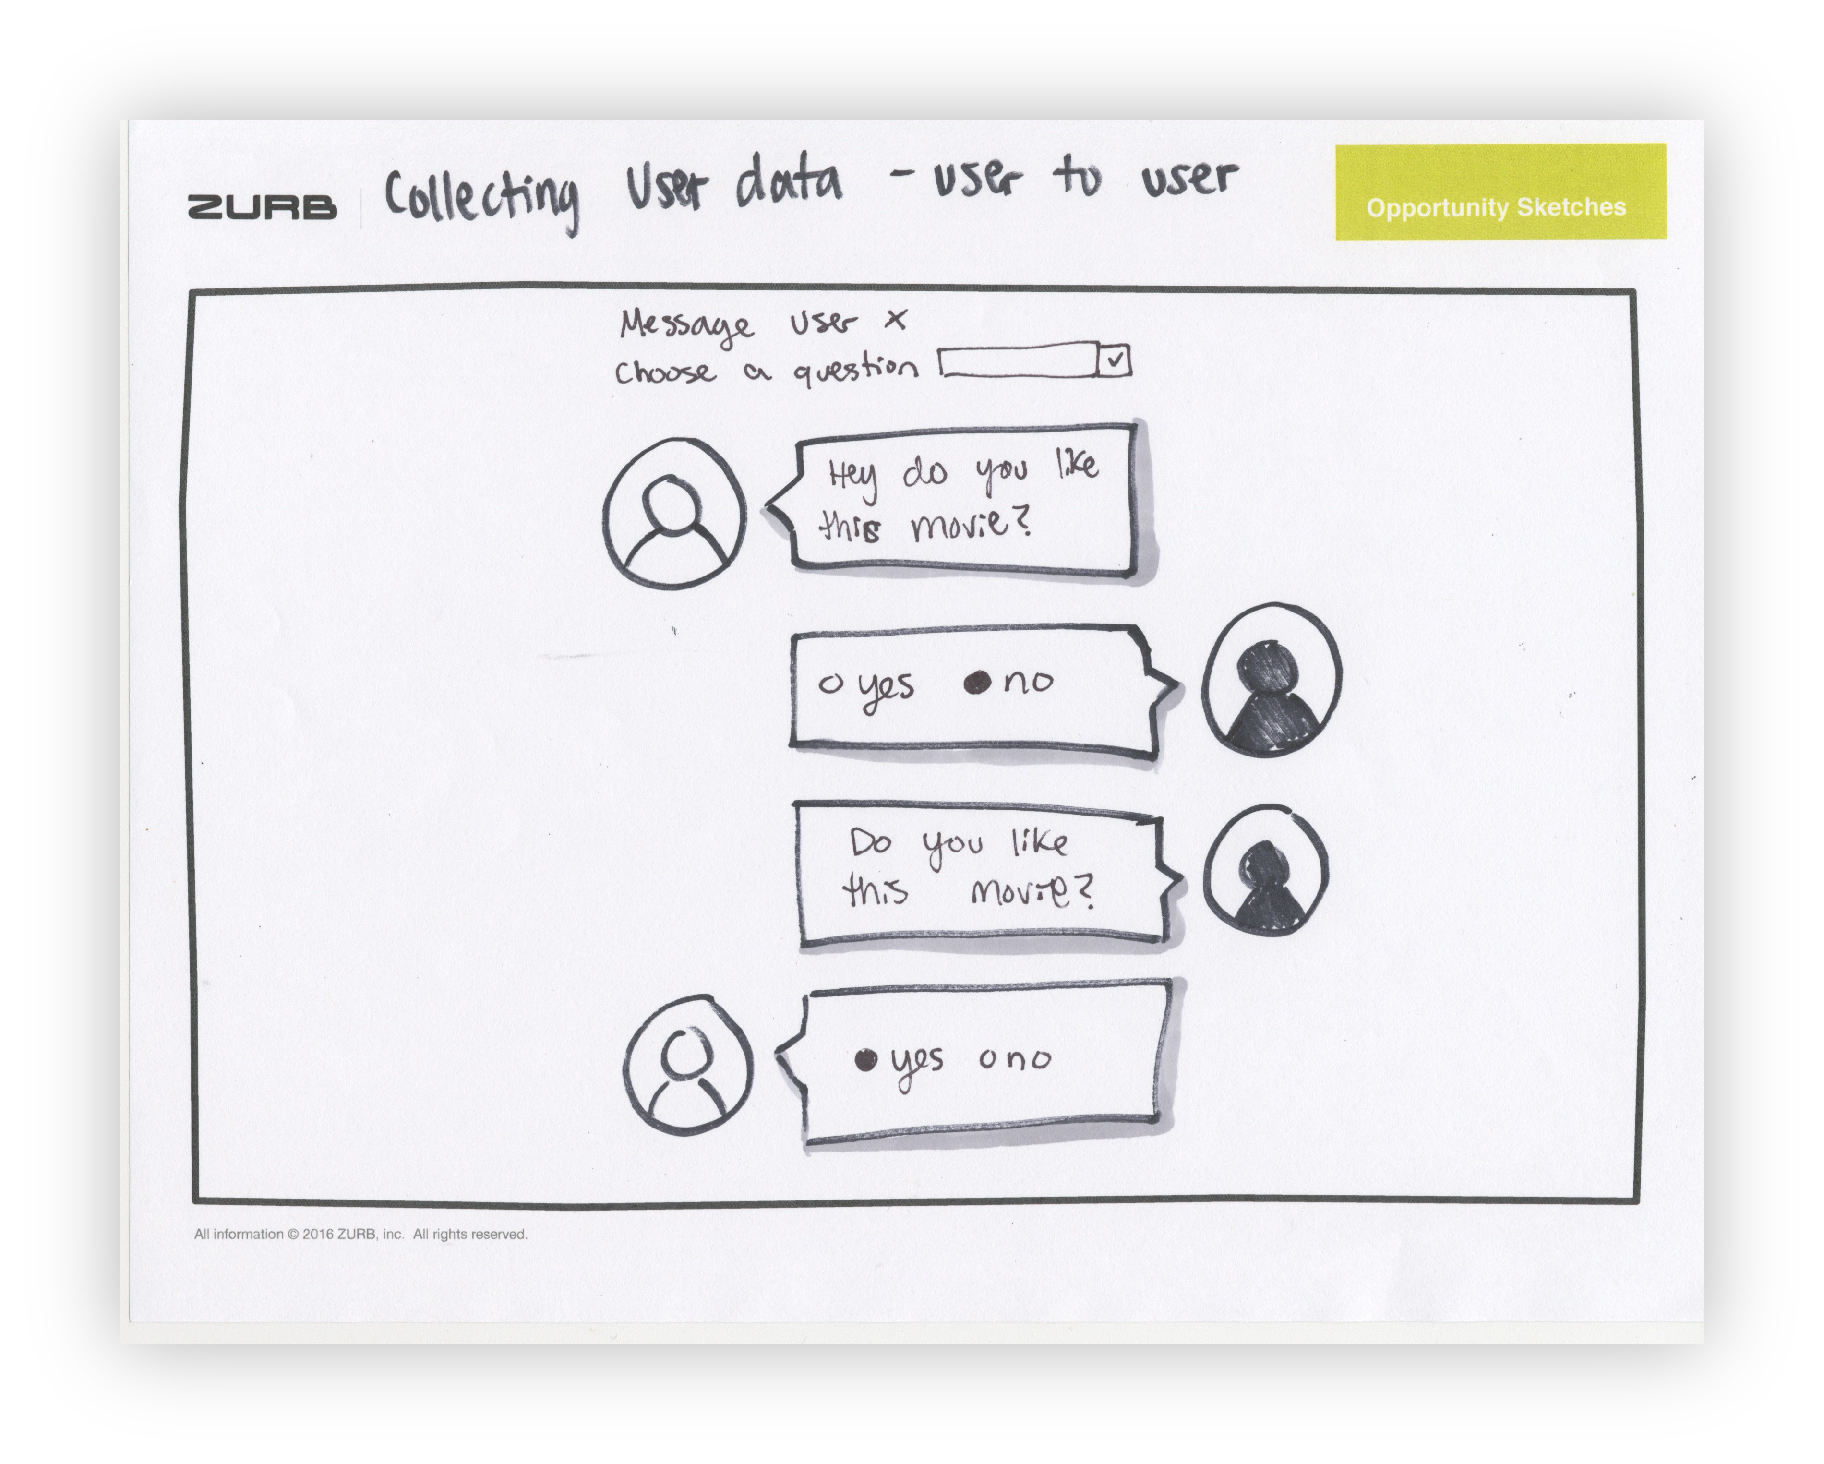 ZURB
Collecting User data - user to user
Opportunity Sketches
Message user x
Choose a question
Hey do you like
this movie?
yes no
Do you like
this movie?
yes no
All information © 2016 ZURB, inc. All rights reserved.